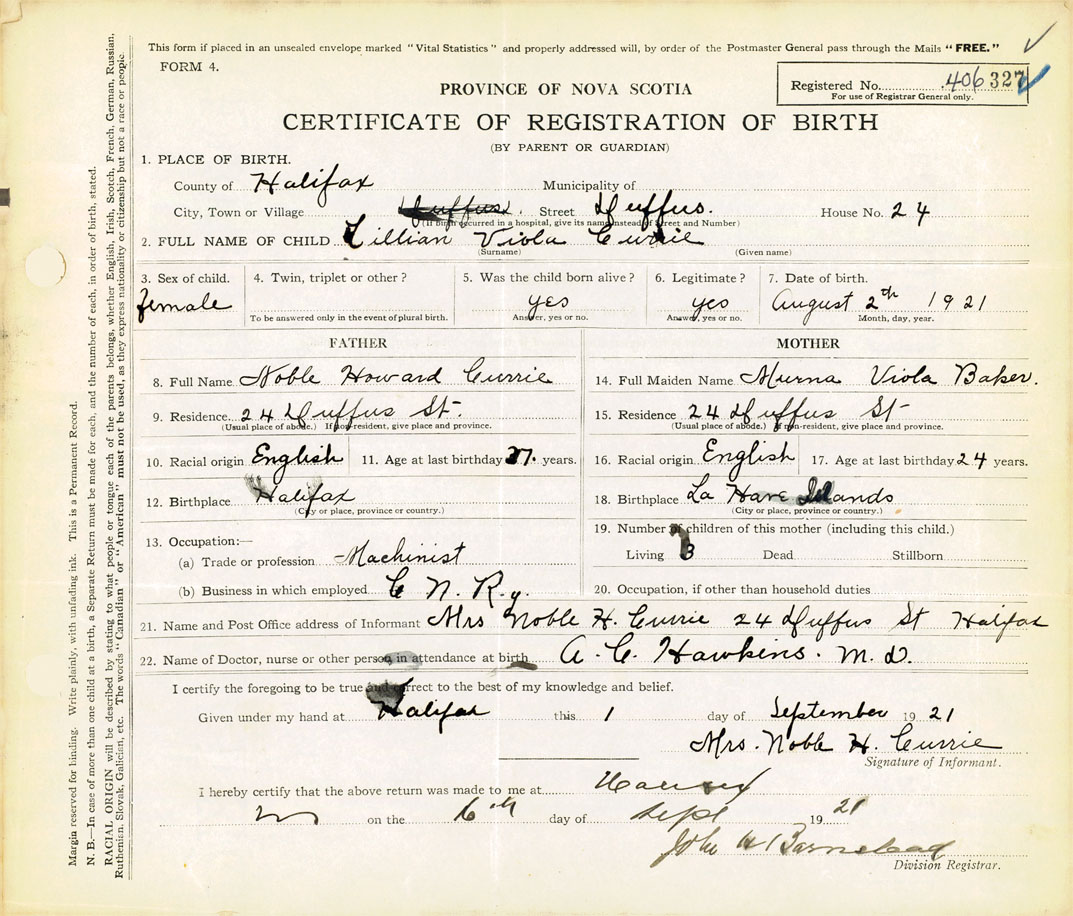 This form if placed in an unsealed envelope marked "Vital Statistics" and properly addressed will, by order of the Postmaster General pass through the Mails "FREE."
FORM 4.
Registered No. 406 327
For use of Registrar General only.
PROVINCE OF NOVA SCOTIA
CERTIFICATE OF REGISTRATION OF BIRTH
(BY PARENT OR GUARDIAN)
1. PLACE OF BIRTH.
County of Halifax Municipality of
City, Town or Village Duffus. Street Duffus. House No. 24
(If birth occurred in a hospital, give its name instead of Street and Number)
2. FULL NAME OF CHILD Lillian Viola Currie
(Surname) (Given name)
3. Sex of child. 4. Twin, triplet or other? 5. Was the child born alive? 6. Legitimate? 7. Date of birth.
female yes yes August 2th 1921
To be answered only in the event of plural birth. Answer, yes or no. Answer, yes or no. Month, day, year.
FATHER
8. Full Name Noble Howard Currie
9. Residence 24 Duffus St.
(Usual place of abode.) If non-resident, give place and province.
10. Racial origin English 11. Age at last birthday 27. years.
12. Birthplace Halifax
(City or place, province or country.)
13. Occupation:—
(a) Trade or profession Machinist
(b) Business in which employed C. N. Ry.
MOTHER
14. Full Maiden Name Murna Viola Baker.
15. Residence 24 Duffus St
(Usual place of abode.) If non-resident, give place and province.
16. Racial origin English 17. Age at last birthday 24 years.
18. Birthplace La Have Islands
(City or place, province or country.)
19. Number of children of this mother (including this child.)
Living 3 Dead Stillborn
20. Occupation, if other than household duties
21. Name and Post Office address of Informant Mrs Noble H. Currie 24 Duffus St Halifax
22. Name of Doctor, nurse or other person in attendance at birth A. C. Hawkins. M.D.
I certify the foregoing to be true and correct to the best of my knowledge and belief.
Given under my hand at Halifax this 1 day of September 1921
Mrs. Noble H. Currie
Signature of Informant.
I hereby certify that the above return was made to me at
on the 6th day of Sept 1921
John H Barnstead
Division Registrar.
Margin reserved for binding. Write plainly, with unfading ink. This is a Permanent Record.
N. B.—In case of more than one child at a birth, a Separate Return must be made for each, and the number of each, in order of birth, stated.
RACIAL ORIGIN will be described by stating to what people or tongue each of the parents belongs, whether English, Irish, Scotch, French, German, Russian,
Ruthenian, Slovak, Galician, etc. The words "Canadian" or "American" must not be used, as they express nationality or citizenship but not a race or people.